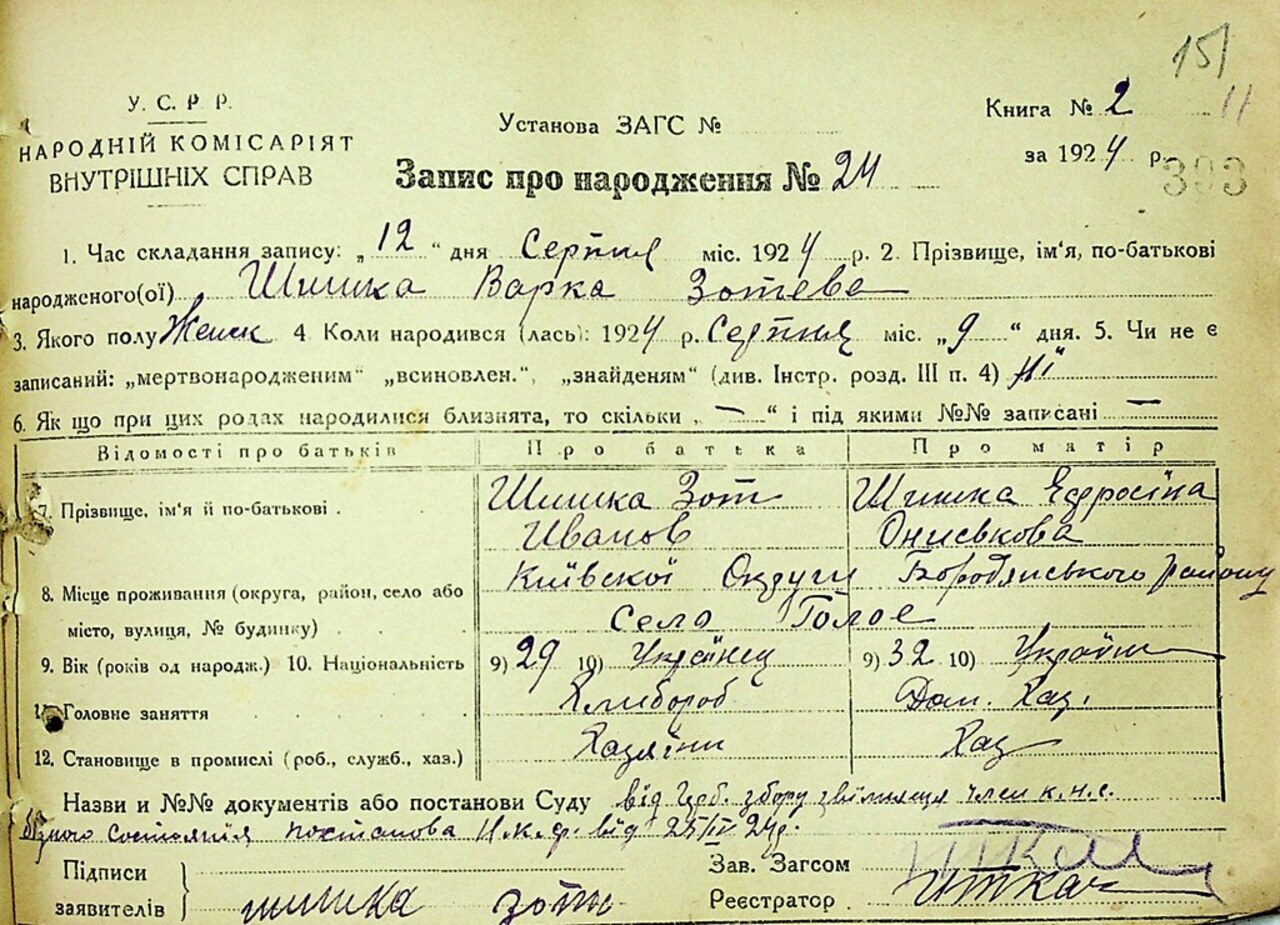 151
У. С. Р. Р.
НАРОДНІЙ КОМІСАРІЯТ
ВНУТРІШНІХ СПРАВ
Установа ЗАГС №
Книга № 2
11
за 1924 р.
393
Запис про народження № 24
1. Час складання запису: „12“ дня Серпня міс. 1924 р. 2. Прізвище, ім'я, по-батькові
народженого(ої) Шишка Варка Зотева
3. Якого полу Женск 4. Коли народився (лась): 1924 р. Серпня міс. „9“ дня. 5. Чи не є
записаний: „мертвонародженим“ „всиновлен.“, „знайденям“ (див. Інстр. розд. III п. 4) Ні
6. Як що при цих родах народилися близнята, то скільки „—“ і під якими №№ записані —
Відомості про батьків Про батька Про матір
7. Прізвище, ім'я й по-батькові Шишка Зот Шишка Ефросіна
Иванов Ониськова
8. Місце проживання (округа, район, село або Київскої Округи Бородянського району
місто, вулиця, № будинку) Село Голое
9. Вік (років од народж.) 10. Національність 9) 29 10) Українец 9) 32 10) Україн
11. Головне заняття Хлибороб Дом. Хаз.
12. Становище в промислі (роб., служб., хаз.) Хазяіни Хаз
Назви и №№ документів або постанови Суду від Герб. збору звільняця член к.н.с.
бідного состоянія постанова Н.к.ф. від 25/IV 24р.
Підписи
заявителів шишка зоти
Зав. Загсом
Реєстратор Ткач